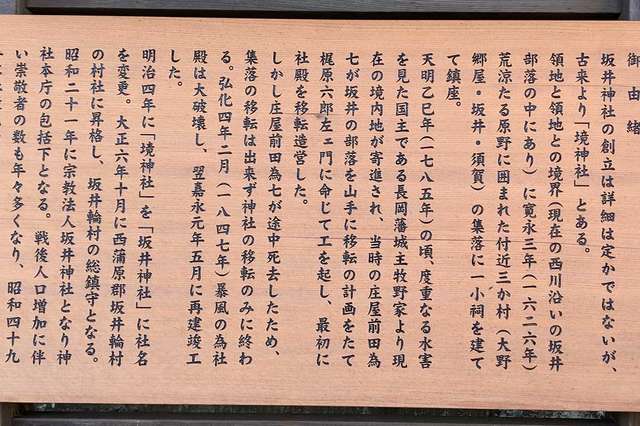 御由緒
坂井神社の創立は詳細は定かではないが、
古来より「境神社」とある。
領地と領地との境界(現在の西川沿いの坂井
部落の中にあり)に寛永三年(一六二六年)
荒涼たる原野に囲まれた付近三か村(大野
郷屋・坂井・須賀)の集落に一小祠を建て
て鎮座。
天明乙巳年(一七八五年)の頃、度重なる水害
を見た国主である長岡藩城主牧野家より現
在の境内地が寄進され、当時の庄屋前田為
七が坂井の部落を山手に移転の計画をたて
梶原六郎左ェ門に命じて工を起し、最初に
社殿を移転造営した。
しかし庄屋前田為七が途中死去したため、
集落の移転は出来ず神社の移転のみに終わ
る。弘化四年二月(一八四七年)暴風の為社
殿は大破壊し、翌嘉永元年五月に再建竣工
した。
明治四年に「境神社」を「坂井神社」に社名
を変更。大正六年十月に西蒲原郡坂井輪村
の村社に昇格し、坂井輪村の総鎮守となる。
昭和二十一年に宗教法人坂井神社となり神
社本庁の包括下となる。戦後人口増加に伴
い崇敬者の数も年々多くなり、昭和四十九